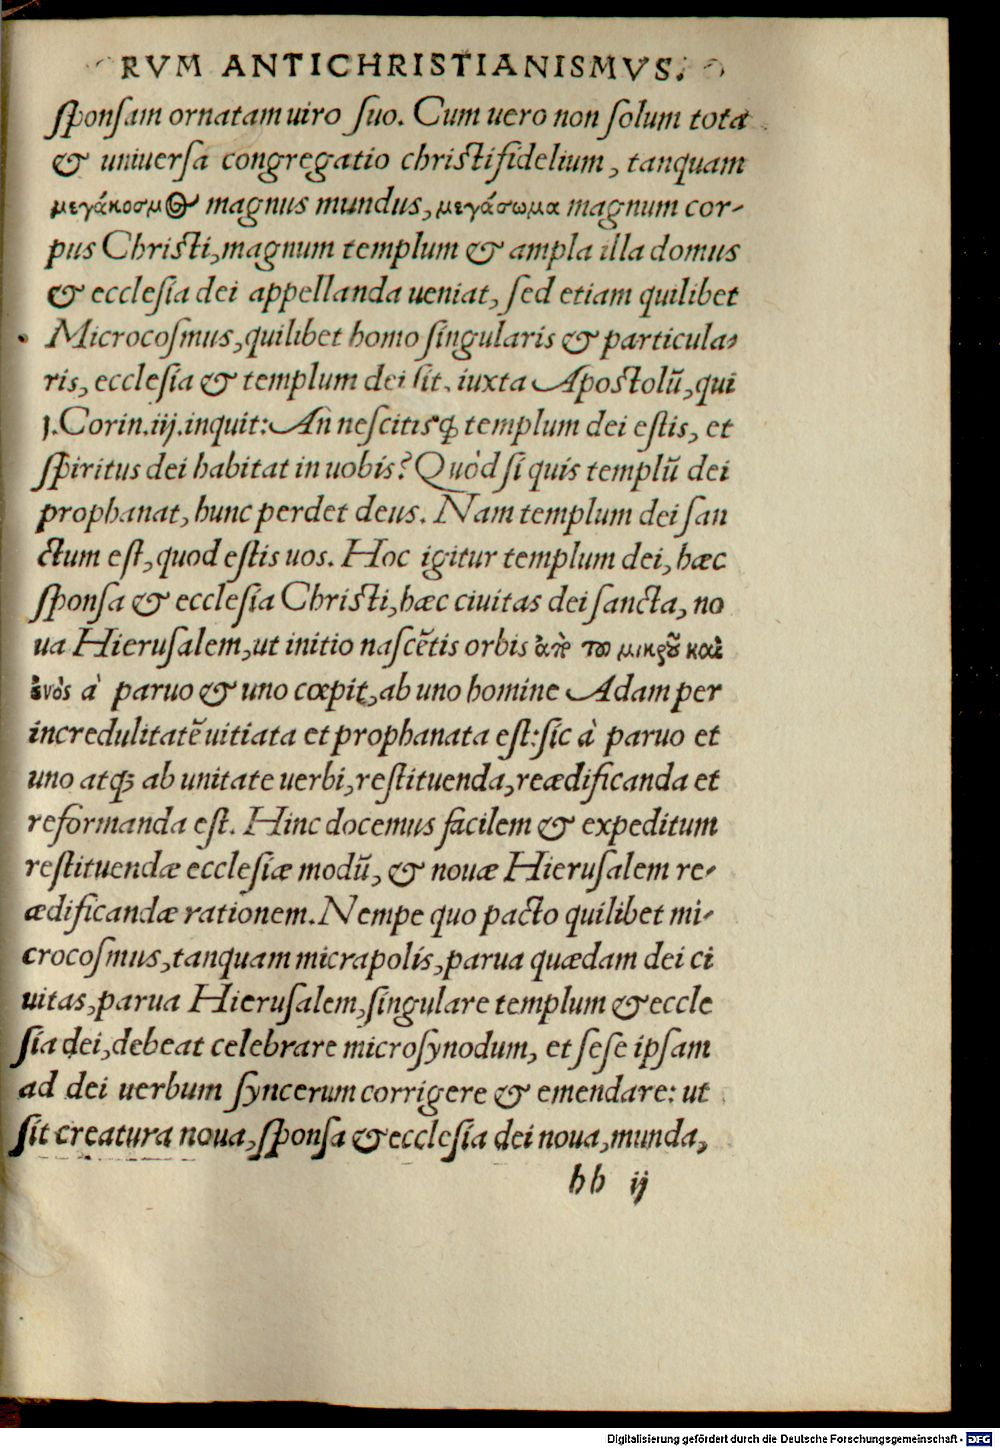 RVM ANTICHRISTIANISMVS.
sponsam ornatam uiro suo. Cum uero non solum tota
& uniuersa congregatio christifidelium, tanquam
μεγάκοσμος magnus mundus, μεγάσωμα magnum cor-
pus Christi, magnum templum & ampla illa domus
& ecclesia dei appellanda ueniat, sed etiam quilibet
Microcosmus, quilibet homo singularis & particula-
ris, ecclesia & templum dei sit, iuxta Apostolū, qui
j.Corin.iij.inquit: An nescitis templum dei estis, et
spiritus dei habitat in uobis? Quòd si quis templū dei
prophanat, hunc perdet deus. Nam templum dei san
ctum est, quod estis uos. Hoc igitur templum dei, hæc
sponsa & ecclesia Christi, hæc ciuitas dei sancta, no
ua Hierusalem, ut initio nascētis orbis ἀπὸ τοῦ μικροῦ καὶ
ἑνὸς à paruo & uno cœpit, ab uno homine Adam per
incredulitatē uitiata et prophanata est: sic à paruo et
uno atq; ab unitate uerbi, restituenda, reædificanda et
reformanda est. Hinc docemus facilem & expeditum
restituendæ ecclesiæ modū, & nouæ Hierusalem re-
ædificandæ rationem. Nempe quo pacto quilibet mi-
crocosmus, tanquam micrapolis, parua quædam dei ci
uitas, parua Hierusalem, singulare templum & eccle
sia dei, debeat celebrare microsynodum, et sese ipsam
ad dei uerbum syncerum corrigere & emendare: ut
sit creatura noua, sponsa & ecclesia dei noua, munda,
bb ij
Digitalisierung gefördert durch die Deutsche Forschungsgemeinschaft - DFG